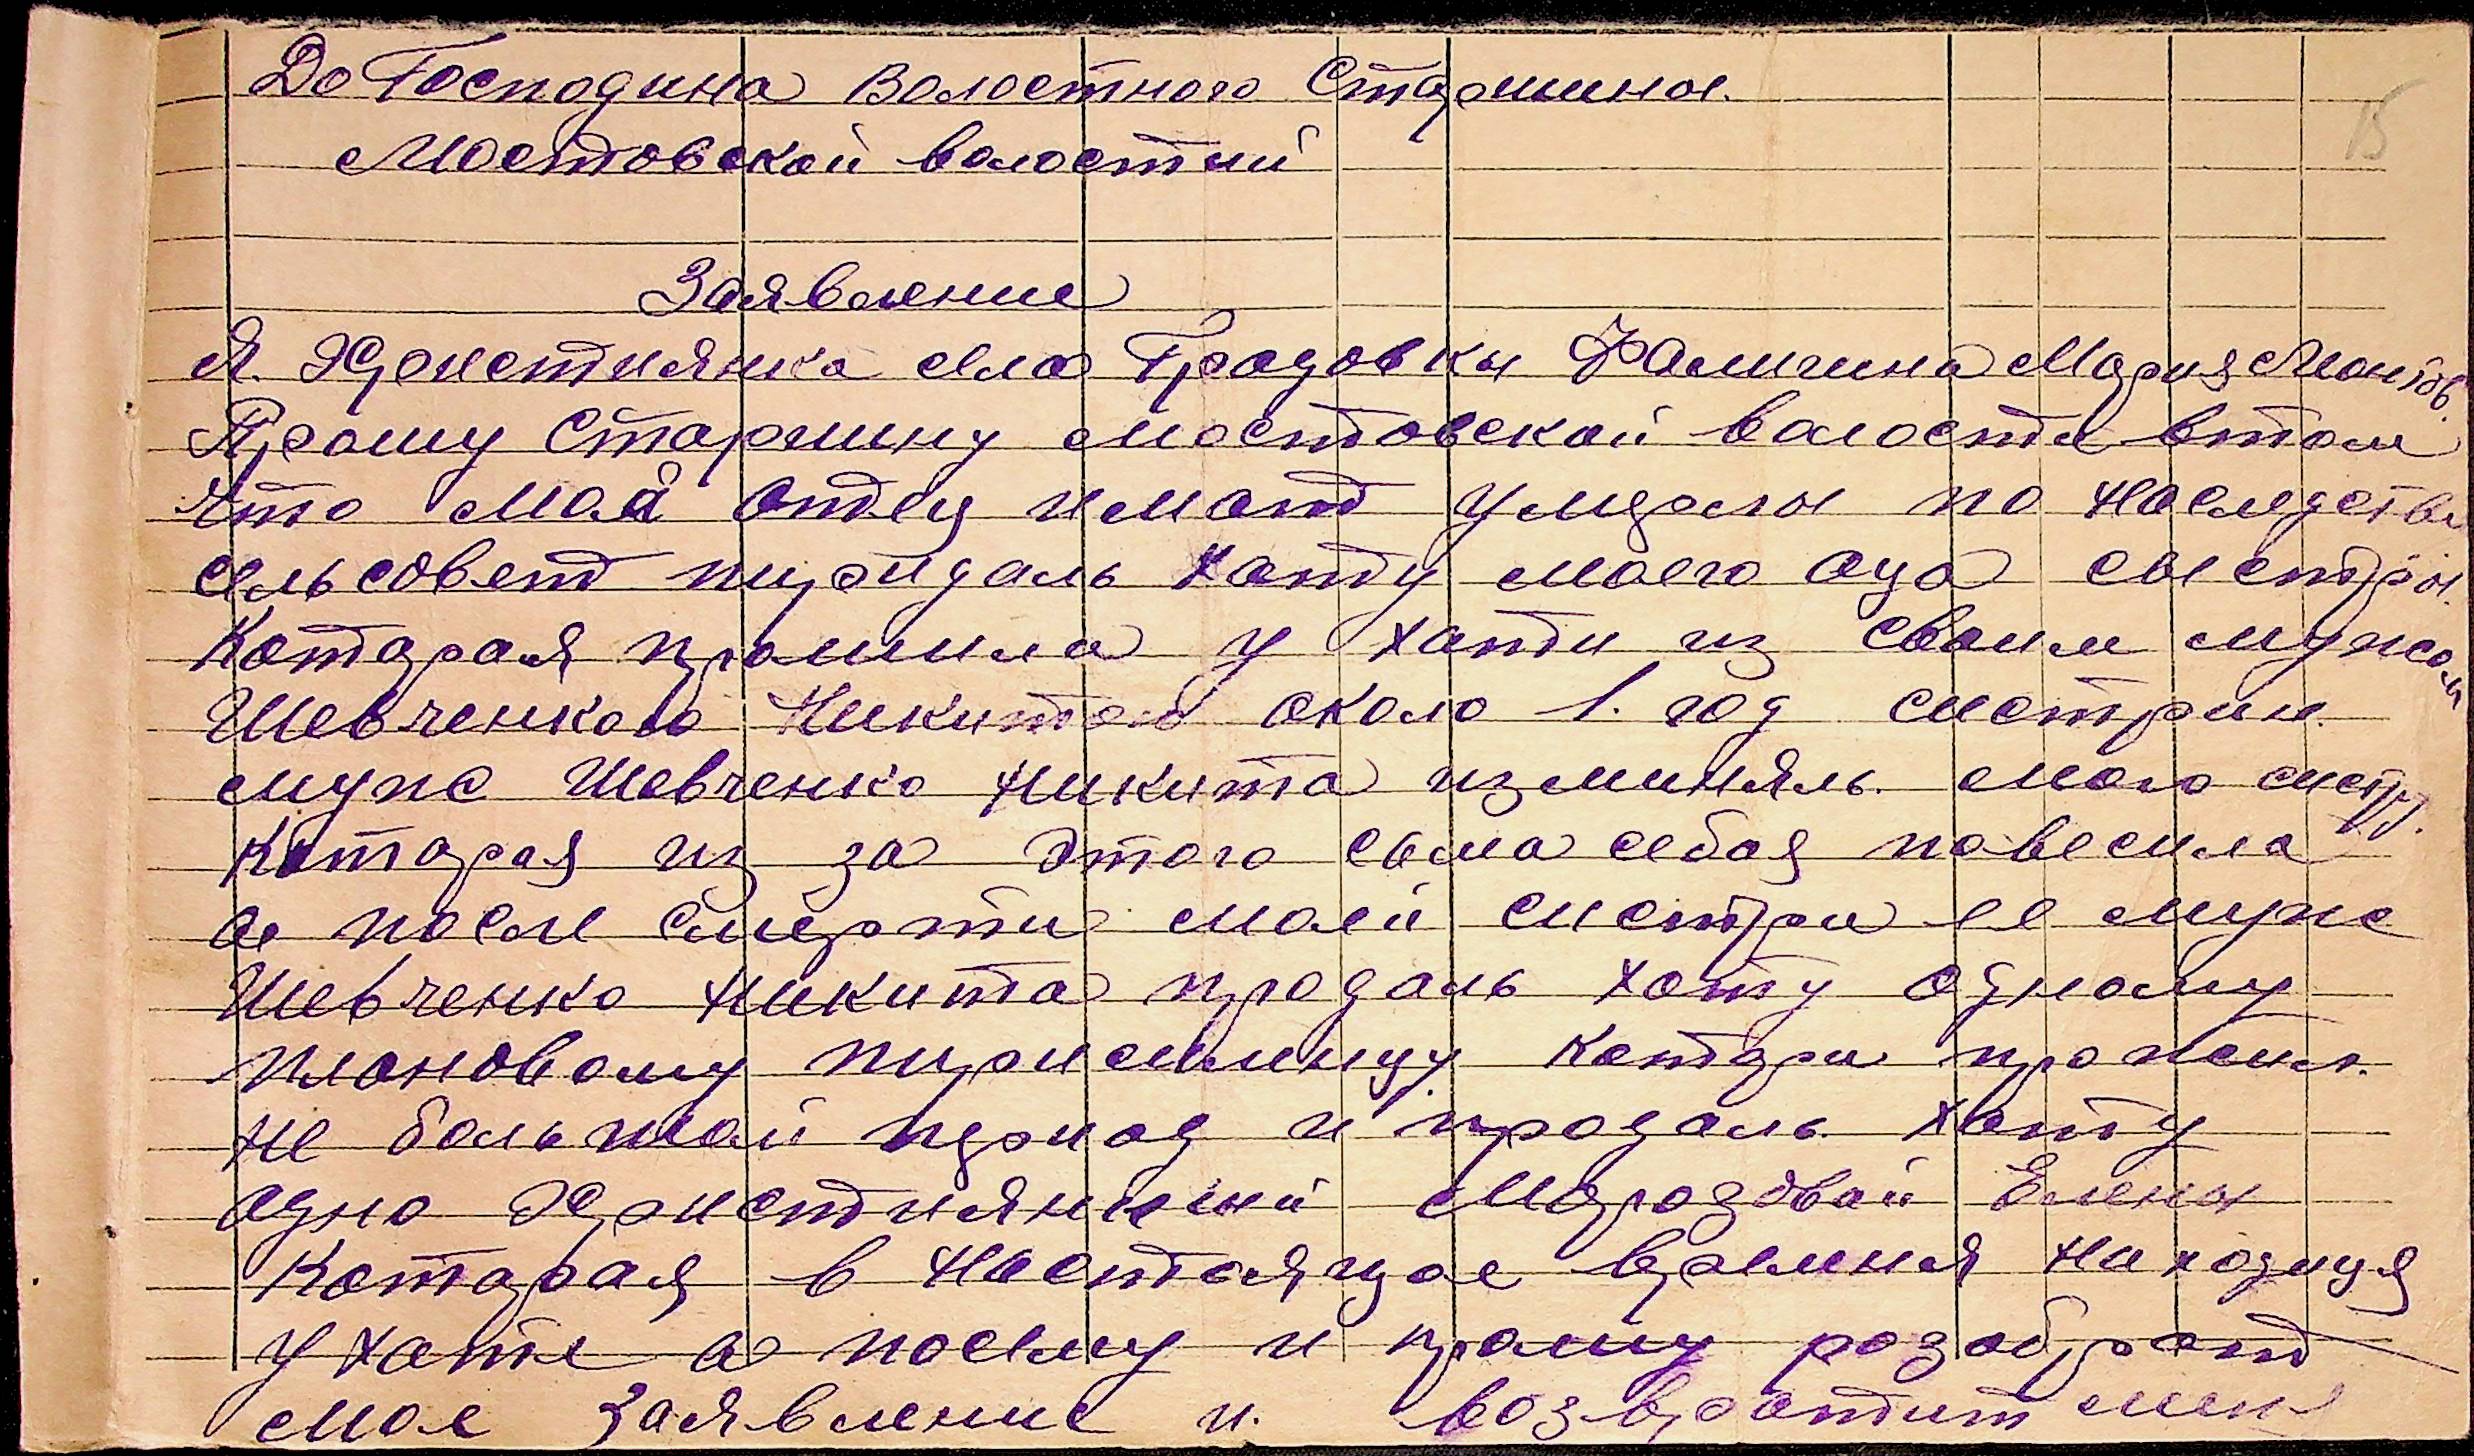 До Господина Волостного Старшины.
15
Мостовской волостий
Заявление
Я. Хрыстиянка села Градовки Фаличина Мария Монтов.
Прошу Старшину мостовской волости втом
что мой отец и мат умерлы по наследстви
сельсовет пиридаль хату моего оца сыстры.
Которая прошила у хати из своим мужом
Шевченкою Никитою около 1. год систрин.
муж Шевченко Никита изминяль. мою систру.
Которая из за этого сыма себоя повесила
а после смерти моей систри ее муж
Шевченко Никита продаль хату одному
плановому пириселинцу. Котори прожил.
не большой период и продаль. хату
одно Хриистиянкий Морозовой Елены
Которая в настоящое времня находиця
у хате а посему и прошу розобрат
мое заявление и. возвратит меня